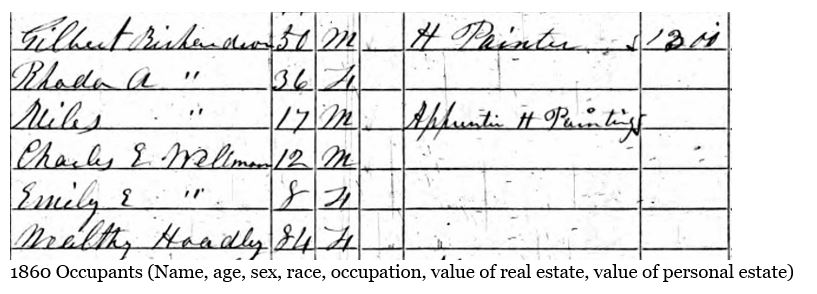 Gilbert Richardson 50 M H Painter 1300
Rhoda A " 36 F
Miles " 17 M Apprentice H Painting
Charles E Wellman 12 M
Emily E " 8 F
Wealthy Hoadly 84 F
1860 Occupants (Name, age, sex, race, occupation, value of real estate, value of personal estate)